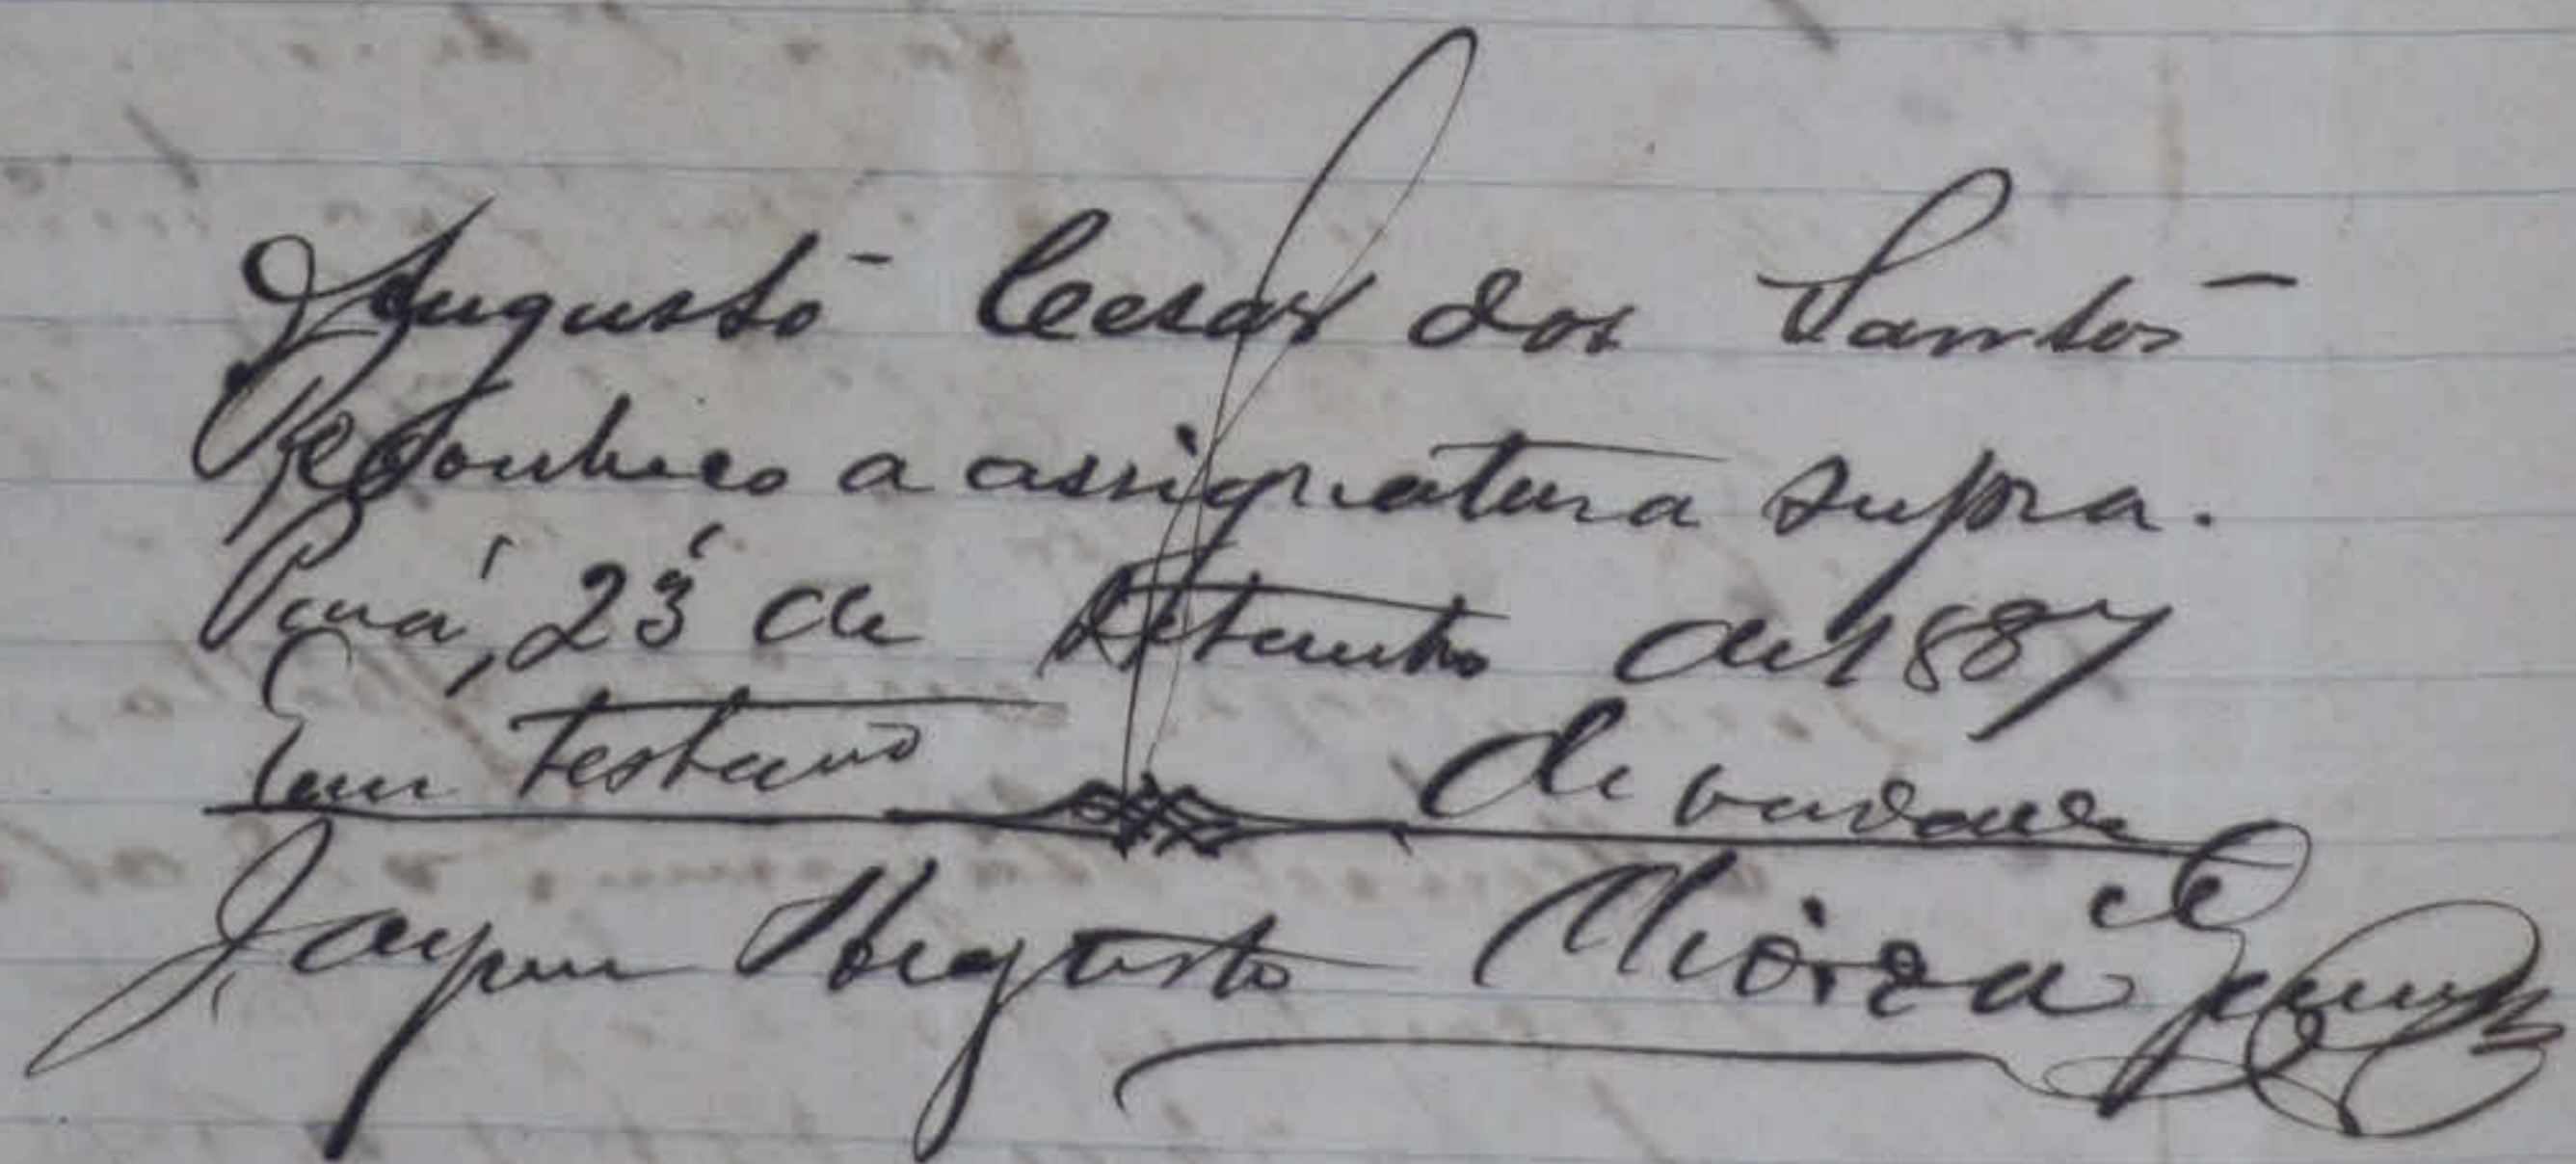 Augusto Cesar dos Santos
Reconheco a assignatura supra.
Pará, 23 de Setembro de 1887
Em testemo de verdade
Augusto